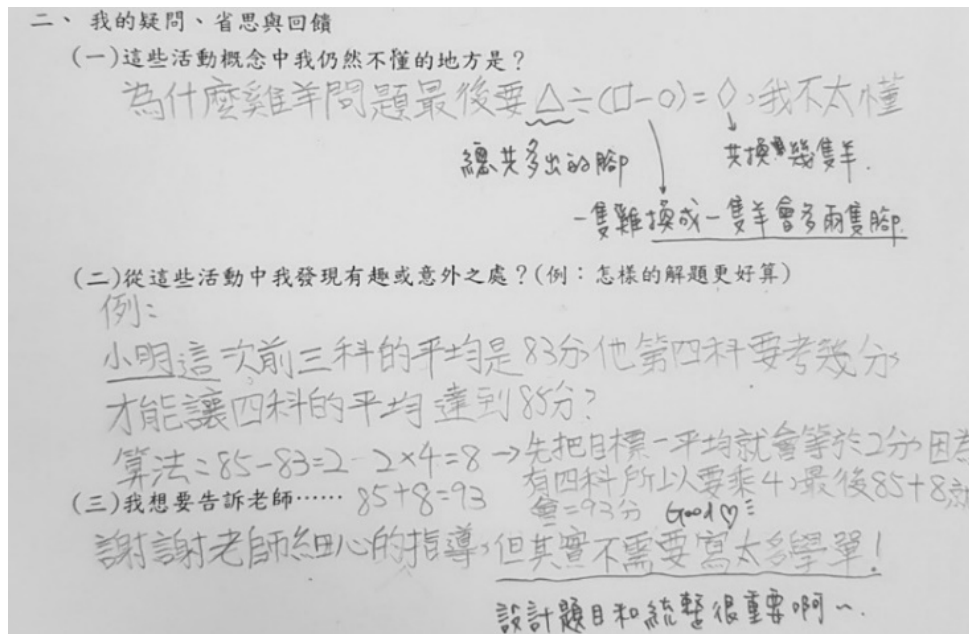 二、 我的疑問、省思與回饋
(一)這些活動概念中我仍然不懂的地方是？
為什麼雞羊問題最後要△÷(□-○)=◇,我不太懂
總共多出的腳
共換幾隻羊.
一隻雞換成一隻羊會多兩隻腳.
(二)從這些活動中我發現有趣或意外之處？(例：怎樣的解題更好算)
例：
小明這次前三科的平均是83分,他第四科要考幾分,
才能讓四科的平均達到85分?
算法：85-83=2 2×4=8→先把目標-平均就會等於2分,因為
有四科所以要乘4,最後85+8就
(三)我想要告訴老師…… 85+8=93
會=93分 Good♡
謝謝老師細心的指導,但其實不需要寫太多學單!
設計題目和統整很重要啊~.